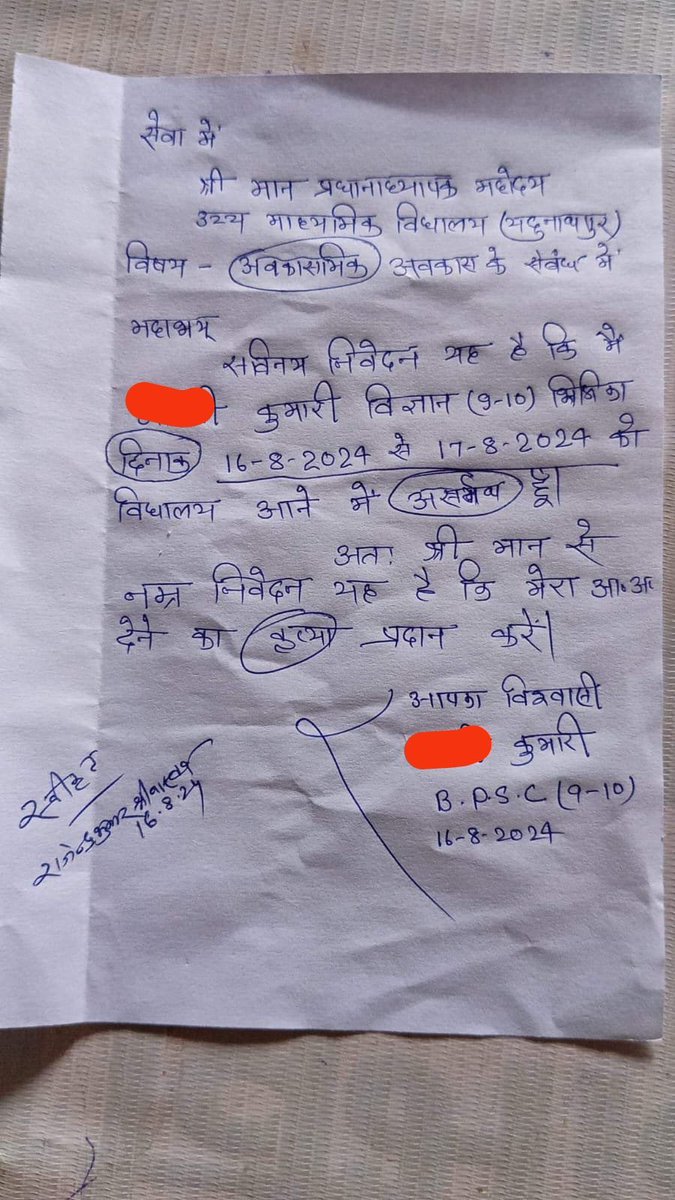 सेवा में
श्री मान प्रधानाध्यापक महोदय
उच्य माध्यमिक विद्यालय (यदुनाथपुर)
विषय - अवकासमिक अवकास के संबंध में
महाशय्
सविनय निवेदन यह है कि मैं
कुमारी विज्ञान (9-10) शिक्षिका
दिनाक 16-8-2024 से 17-8-2024 को
विधालय आने में असर्मथ हूँ।
अतः श्री मान से
नम्र निवेदन यह है कि मेरा आ॰अ॰
देने का कृत्या प्रदान करें।
आपका विश्वासी
कुमारी
B.P.S.C (9-10)
16-8-2024
स्वीकृत
राजेन्द्र कुमार श्रीवास्तव
16.8.24